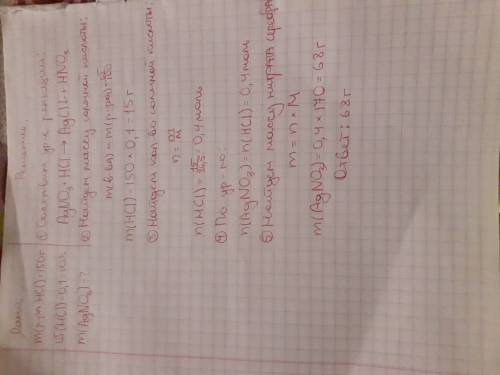 Дано:
m(р-ра HCl)=150г
ω(HCl)=0,1
m(AgNO₃)-?
Решение
① Составим ур-е реакции:
AgNO₃+HCl→AgCl↓+HNO₃
② Найдем массу соляной кислоты:
m(HCl)=150*0,1=15г
③ Найдем кол-во соляной кислоты:
n=m/M
n(HCl)=15/36,5=0,4моль
④ По ур-ю:
n(AgNO₃)=n(HCl)=0,4моль
⑤ Найдем массу нитрата серебра
m=n*M
m(AgNO₃)=0,4*170=68г
Ответ: 68г